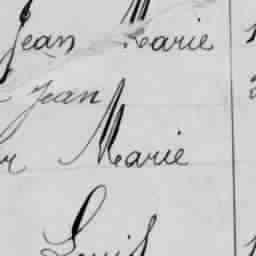 Jean Marie
Jean
Marie
Louis